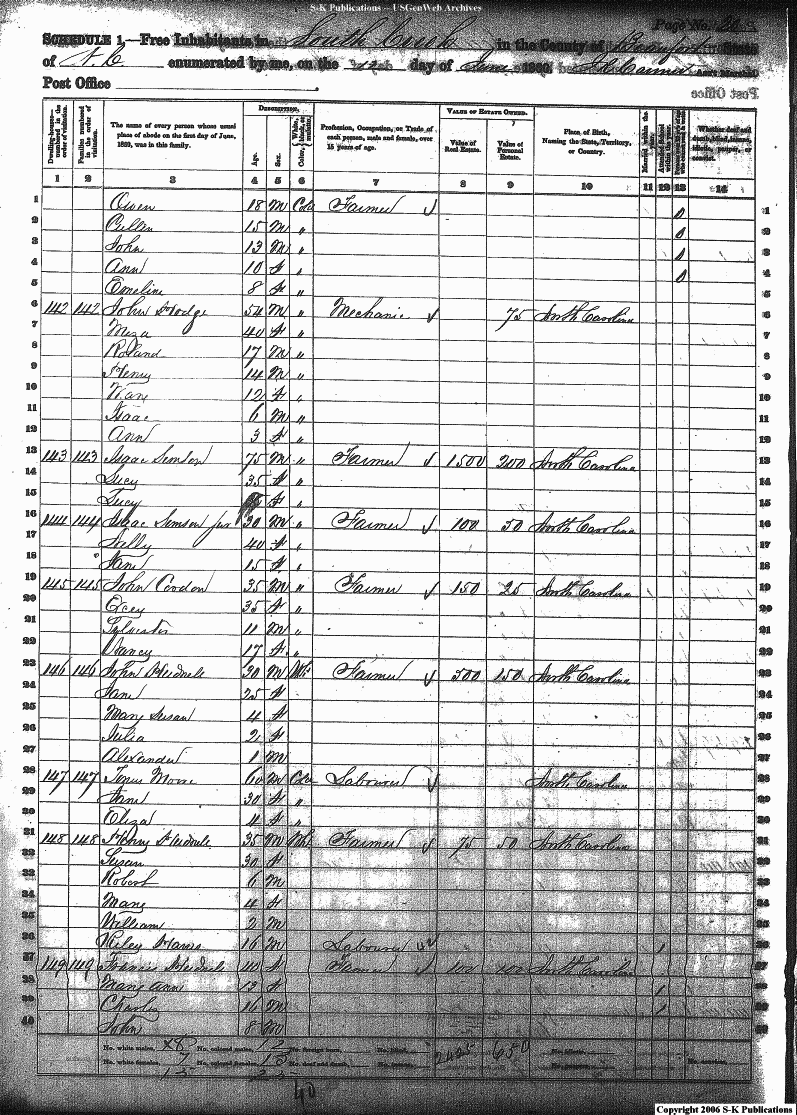 S-K Publications -- USGenWeb Archives
Page No. 20
SCHEDULE 1.—Free Inhabitants in South Creek in the County of Beaufort State
of N. C. enumerated by me, on the 12 day of June 1860. Ass't Marshal
Post Office
Post Office
Dwelling-houses—numbered in the order of visitation.
Families numbered in the order of visitation.
The name of every person whose usual place of abode on the first day of June, 1860, was in this family.
DESCRIPTION.
Age.
Sex.
Color, White, black, or mulatto.
Profession, Occupation, or Trade of each person, male and female, over 15 years of age.
VALUE OF ESTATE OWNED.
Value of Real Estate.
Value of Personal Estate.
Place of Birth, Naming the State, Territory, or Country.
Married within the year.
Attended School within the year.
Whether deaf and dumb, blind, insane, idiotic, pauper, or convict.
1 2 3 4 5 6 7 8 9 10 11 12 13 14
1 Owen 18 M Cold Farmer 1
2 Cullin 15 M " 2
3 John 13 M " 3
4 Ann 10 F " 4
5 Emeline 8 F " 5
6 142 142 John Hodge 54 M " Mechanic 75 North Carolina 6
7 40 F " 7
8 Roland 17 M " 8
9 Henry 14 M " 9
10 12 F " 10
11 Isaac 6 M " 11
12 Ann 3 F " 12
13 143 143 Isaac Simson 75 M " Farmer 1500 200 North Carolina 13
14 Lucy 35 F " 14
15 Lucy F " 15
16 144 144 Isaac Simson jur 30 M " Farmer 100 50 North Carolina 16
17 Sally 40 F " 17
18 Jane 15 F " 18
19 145 145 John Cordon 35 M " Farmer 150 25 North Carolina 19
20 35 F " 20
21 Sylvester 11 M " 21
22 Nancy 17 F " 22
23 146 146 John 30 M Wht Farmer 500 150 North Carolina 23
24 Jane 25 F 24
25 Mary Susan 4 F 25
26 Julia 2 F 26
27 Alexander 1 M 27
28 147 147 Moore 60 M Cold Labourer North Carolina 28
29 Jane 30 F " 29
30 Eliza 4 F " 30
31 148 148 Henry 35 M Wht Farmer 75 50 North Carolina 31
32 Susan 30 F
33 Robert 6 M
34 Mary 4 F
35 William 2 M
36 Riley Harris 16 M Labourer 1
37 149 149 Francis 40 F Farmer 100 100 North Carolina
38 Mary Ann 12 F 1
39 Charles 16 M 1
40 John 8 M
No. white males, No. colored males, 12 No. foreign born, No. blind, 2425 650 No. idiotic, No. convicts,
No. white females, 7 No. colored females, 13 No. deaf and dumb, No. insane, No. paupers,
40
Copyright 2006 S-K Publications